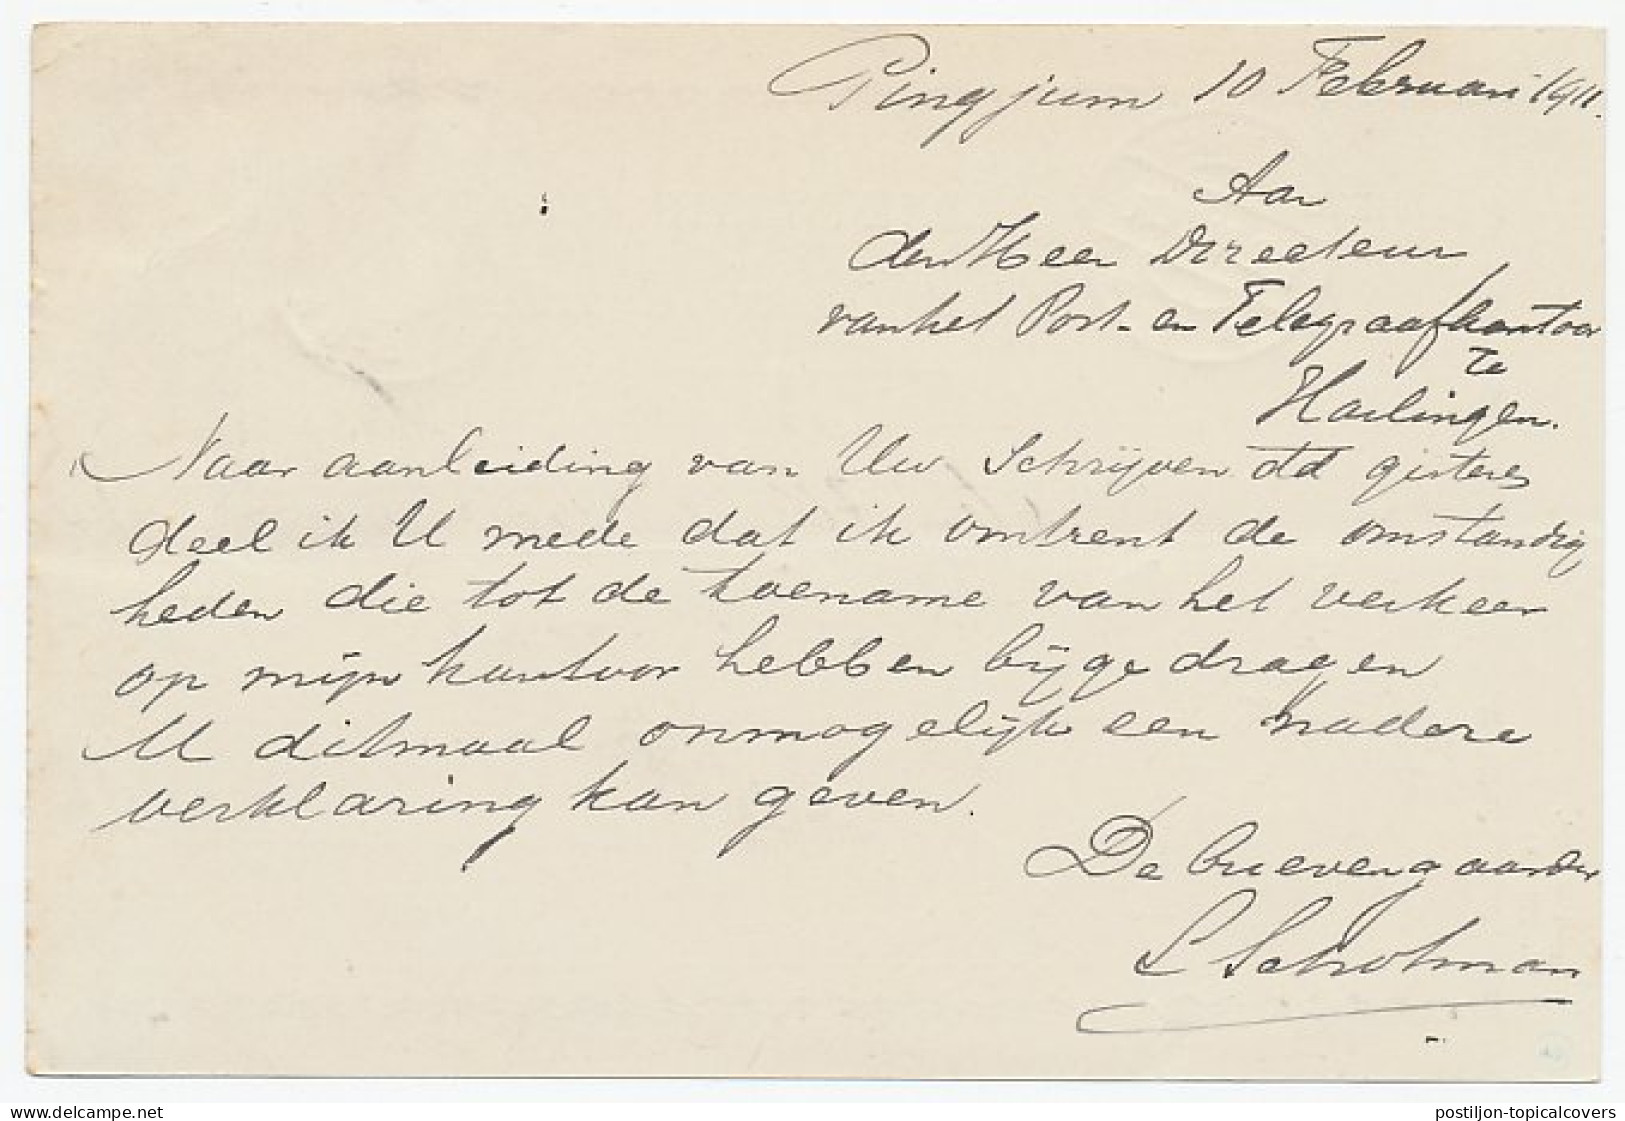 Pingjum 10 Februari 1911.
Aan
den Heer Directeur
van het Post- en Telegraafkantoor
te
Harlingen.
Naar aanleiding van Uw Schrijven dd gisteren
deel ik U mede dat ik omtrent de omstandig
heden die tot de toename van het verkeer
op mijn kantoor hebben bijgedragen
U ditmaal onmogelijk een nadere
verklaring kan geven.
De brievengaarder
S Scholman
© www.delcampe.net
postiljon-topicalcovers